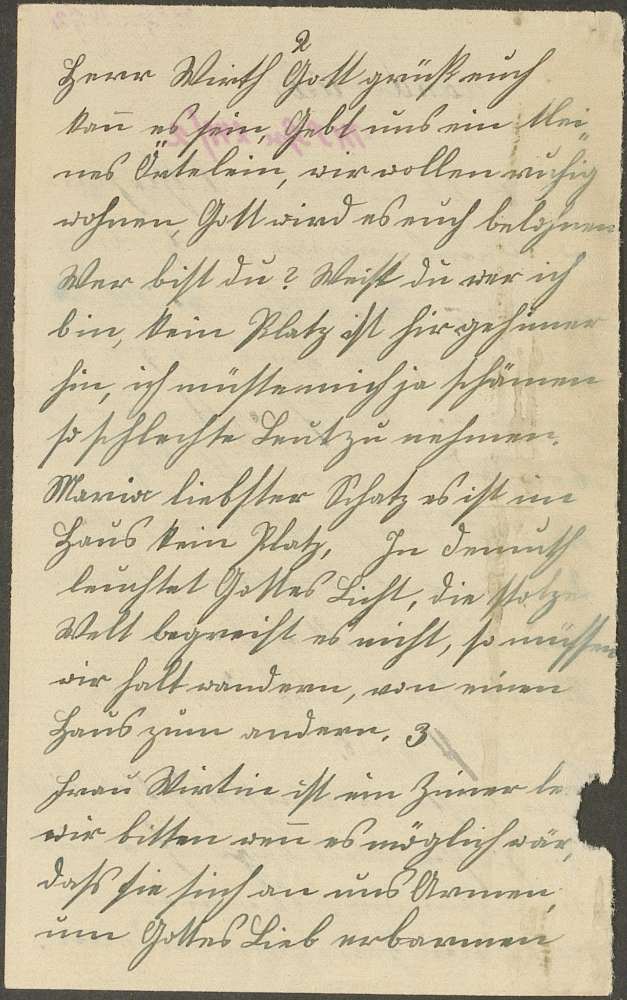 2
Herr Wirth Gott grüß euch
kan̄ es sein, Gebt uns ein klei
nes Örtelein, wir wollen ruhig
wohnen, Gott wird es euch belohnen
Wer bist du? Weist du wer ich
bin, kein Platz ist hir geh immer
hin, ich müste mich ja schämen
so schlechte Leut zu nehmen.
Maria liebster Schatz es ist im
Haus kein Platz, In Demuth
leuchtet Gottes Licht, die stolze
Welt begreift es nicht, so müssen
wir halt wandern, von einen
Haus zum andern. 3
Frau Wirtin ist ein Zim̄er le
wir bitten wen̄ es möglich wär,
dass sie sich an uns Armen,
um Gottes Lieb erbarmen